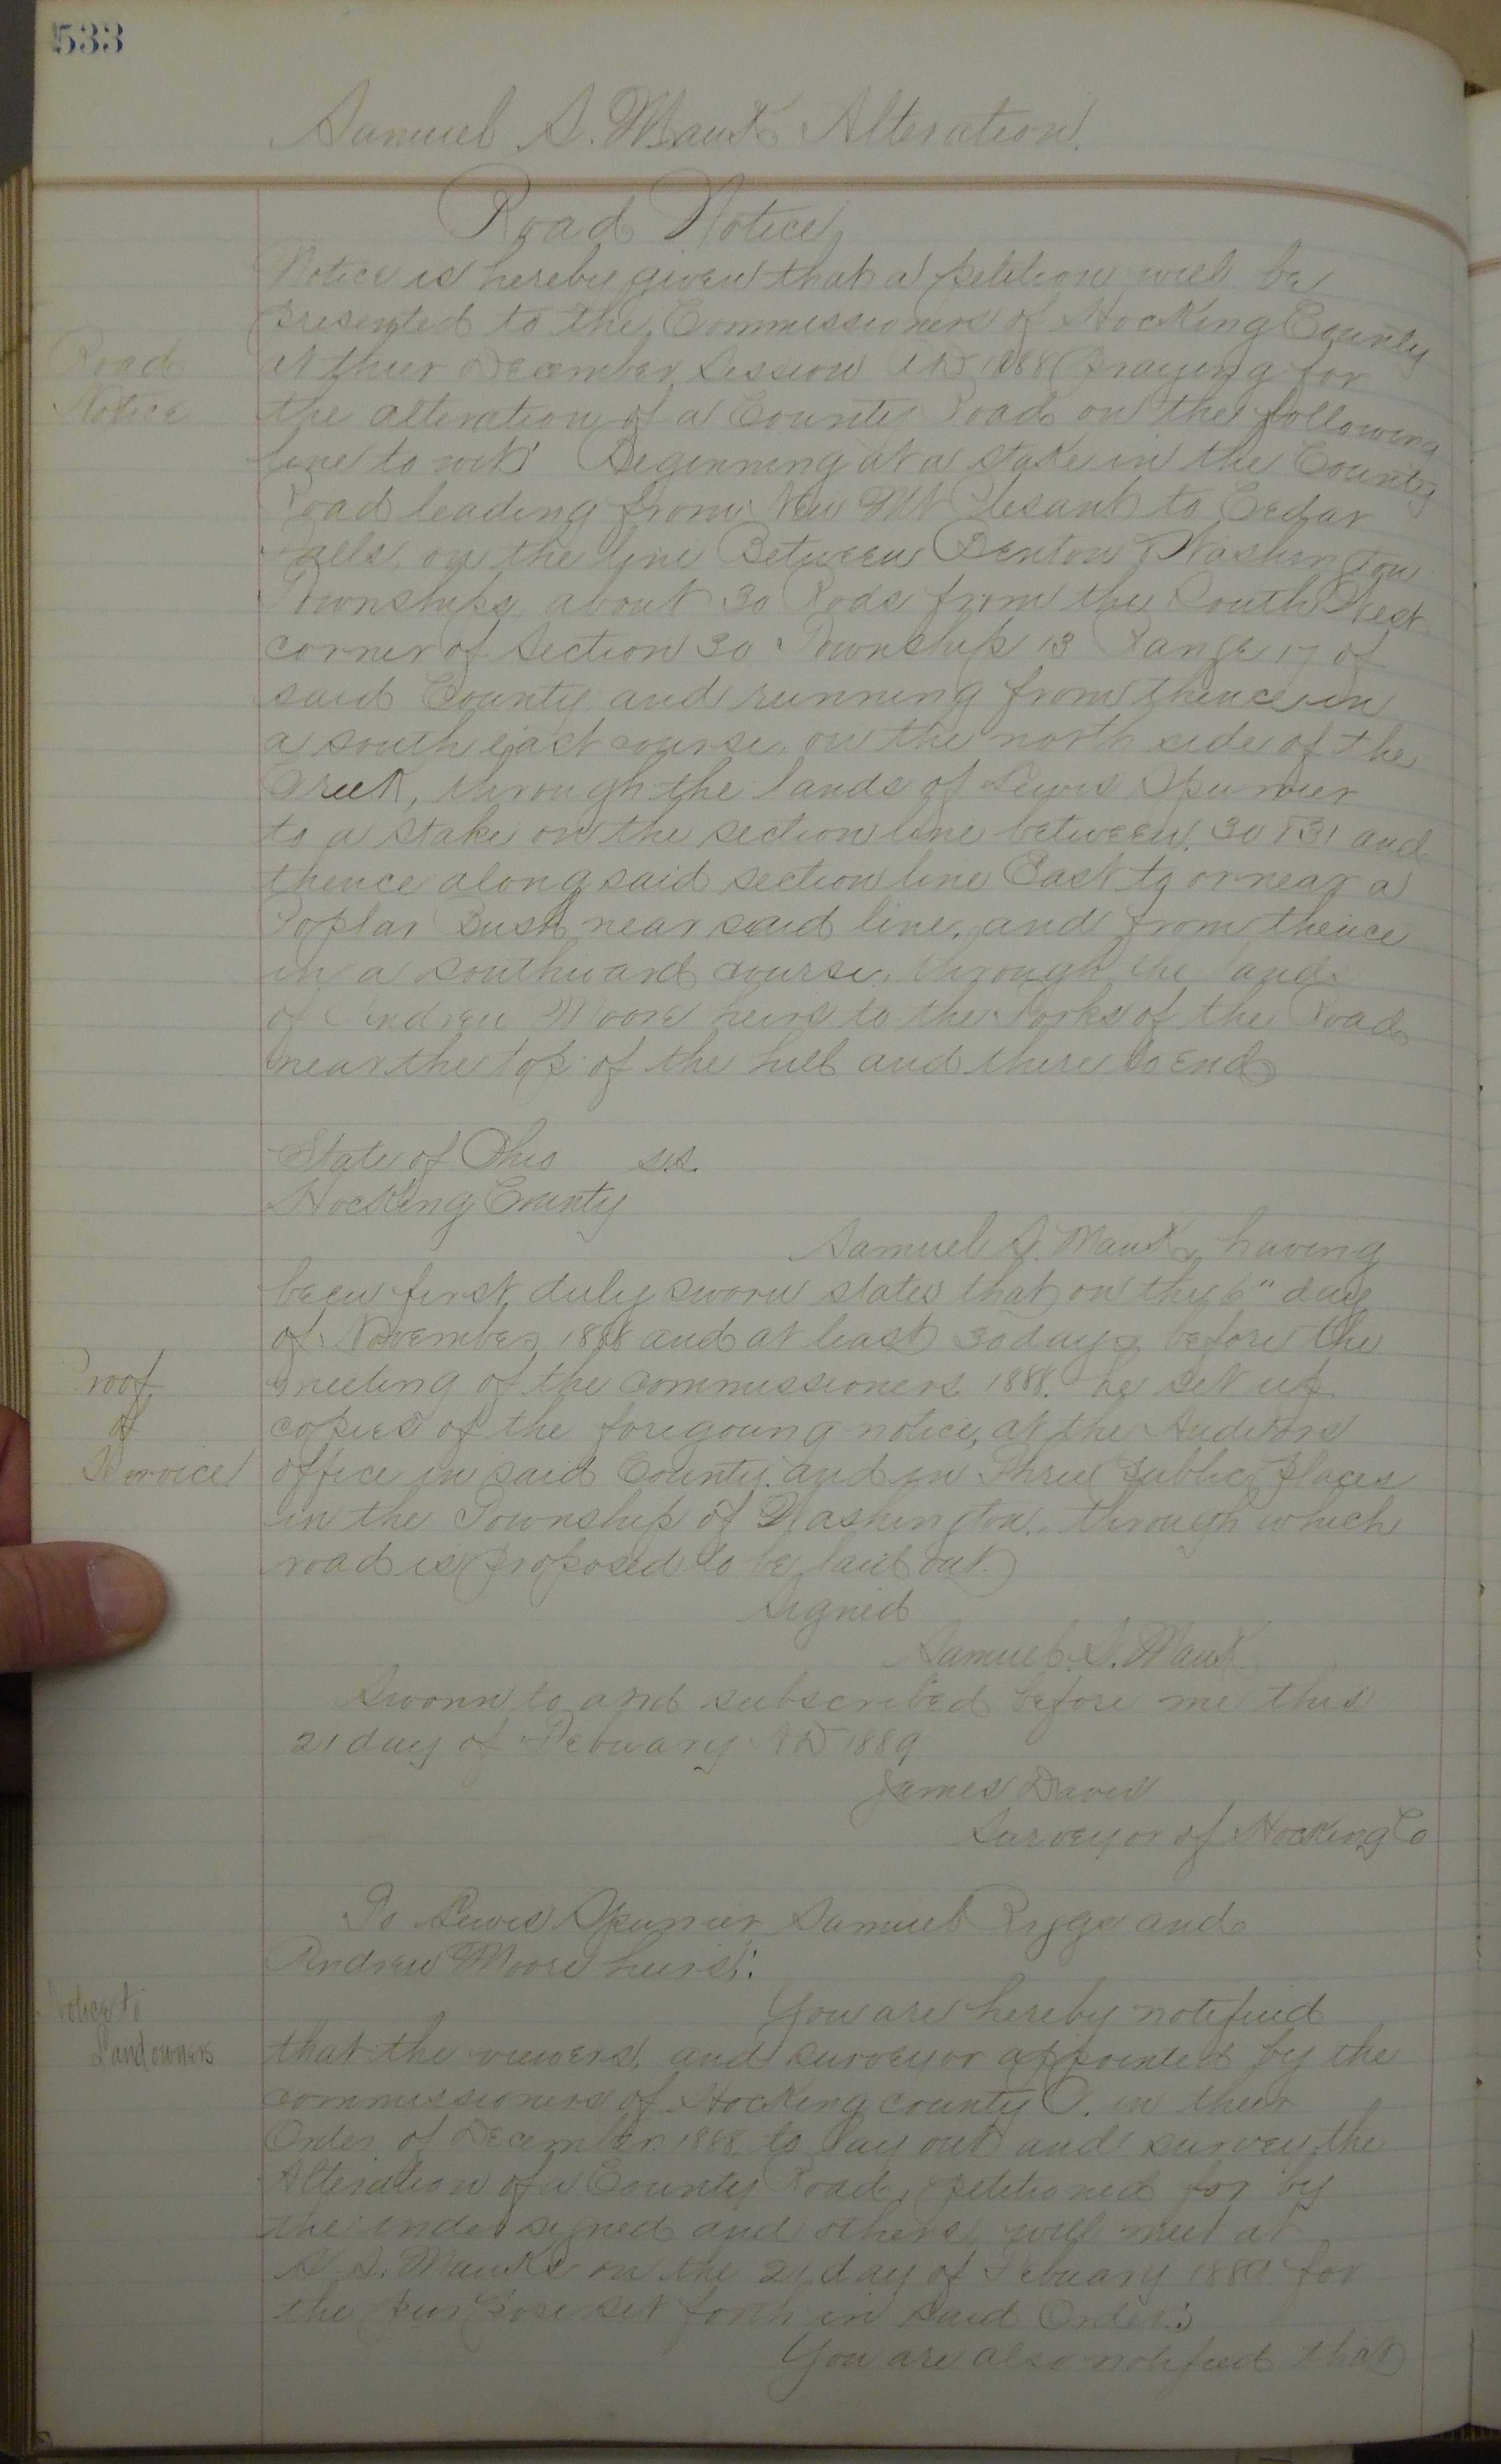 533
Samuel S. Mauk Alteration.
Road Notice
Notice is hereby given that a petition will be
presented to the Commissioners of Hocking County
Road
at thier December Session AD 1888 praying for
Notice
the alteration of a County Road on the following
line to wit: Beginning at a stake in the County
Road leading from New Mt Plesant to Cedar
Falls, on the line Between Benton & Washington
Townships about 30 Rods from the South West
corner of Section 30 Township 13 Range 17 of
said County and running from thence in
a south east course, on the north side of the
Creek, through the lands of Lewis Spurrier
to a stake on the section line between 30 & 31 and
thence along said section line East to or near a
Poplar Bush near said line, and from thence
in a southward course, through the lands
of Andrew Moore heirs to the Forks of the Road
near the top of the hill and there to end
State of Ohio s.s.
Hocking County
Samuel S. Mauk, having
been first duly sworn states that on the 6" day
of November 1888 and at least 30 days before the
Proof
meeting of the commissioners 1888. he set up
of
copies of the foregoing notice, at the Auditors
Service
office in said County. and in Three public places
in the Township of Washington. through which
road is proposed to be laid out.
Signed
Samuel S. Mauk
Sworn to and subscribed before me this
21 day of Febuary AD 1889
James Davis
Surveyor of Hocking Co
To Lewis Spurrier, Samuel Riggs and
Andrew Moore heirs:
You are hereby notified
Notice to
Landowners
that the viewers, and surveyor appointed by the
commissioners of Hocking county O. in their
Order of December 1888 to lay out and survey the
Alteration of a County Road, petitioned for by
the undersigned and others, will meet at
S. S. Mauks on the 21 day of Febuary 1889 for
the purpose set forth in said Order:
You are also notified that